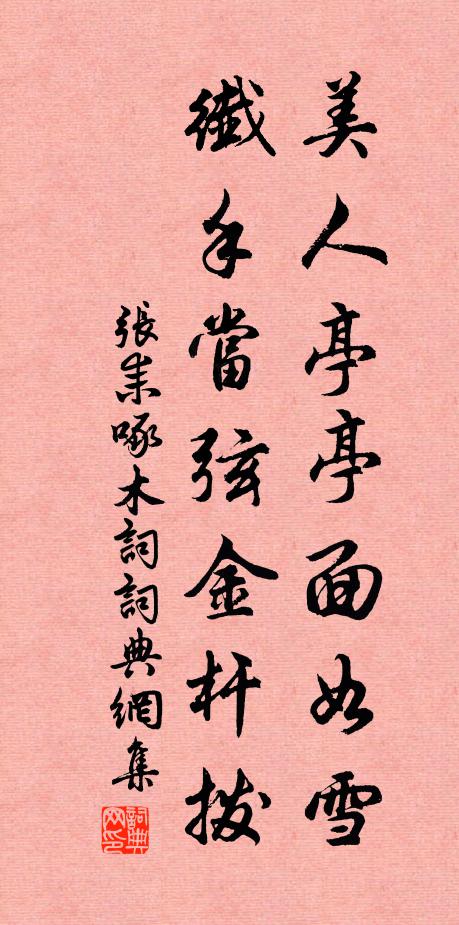 美人亭亭面如雪
纖手當弦金杆撥
張耒啄木詞詞典網集
詞典网印